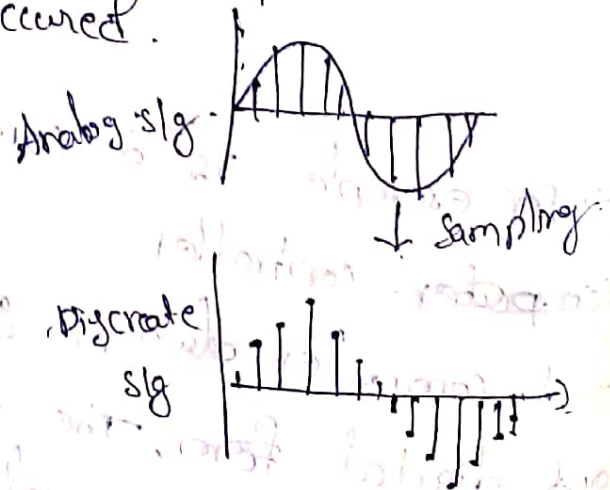 ccured.
Analog s/g
sampling
Discreate
s/g